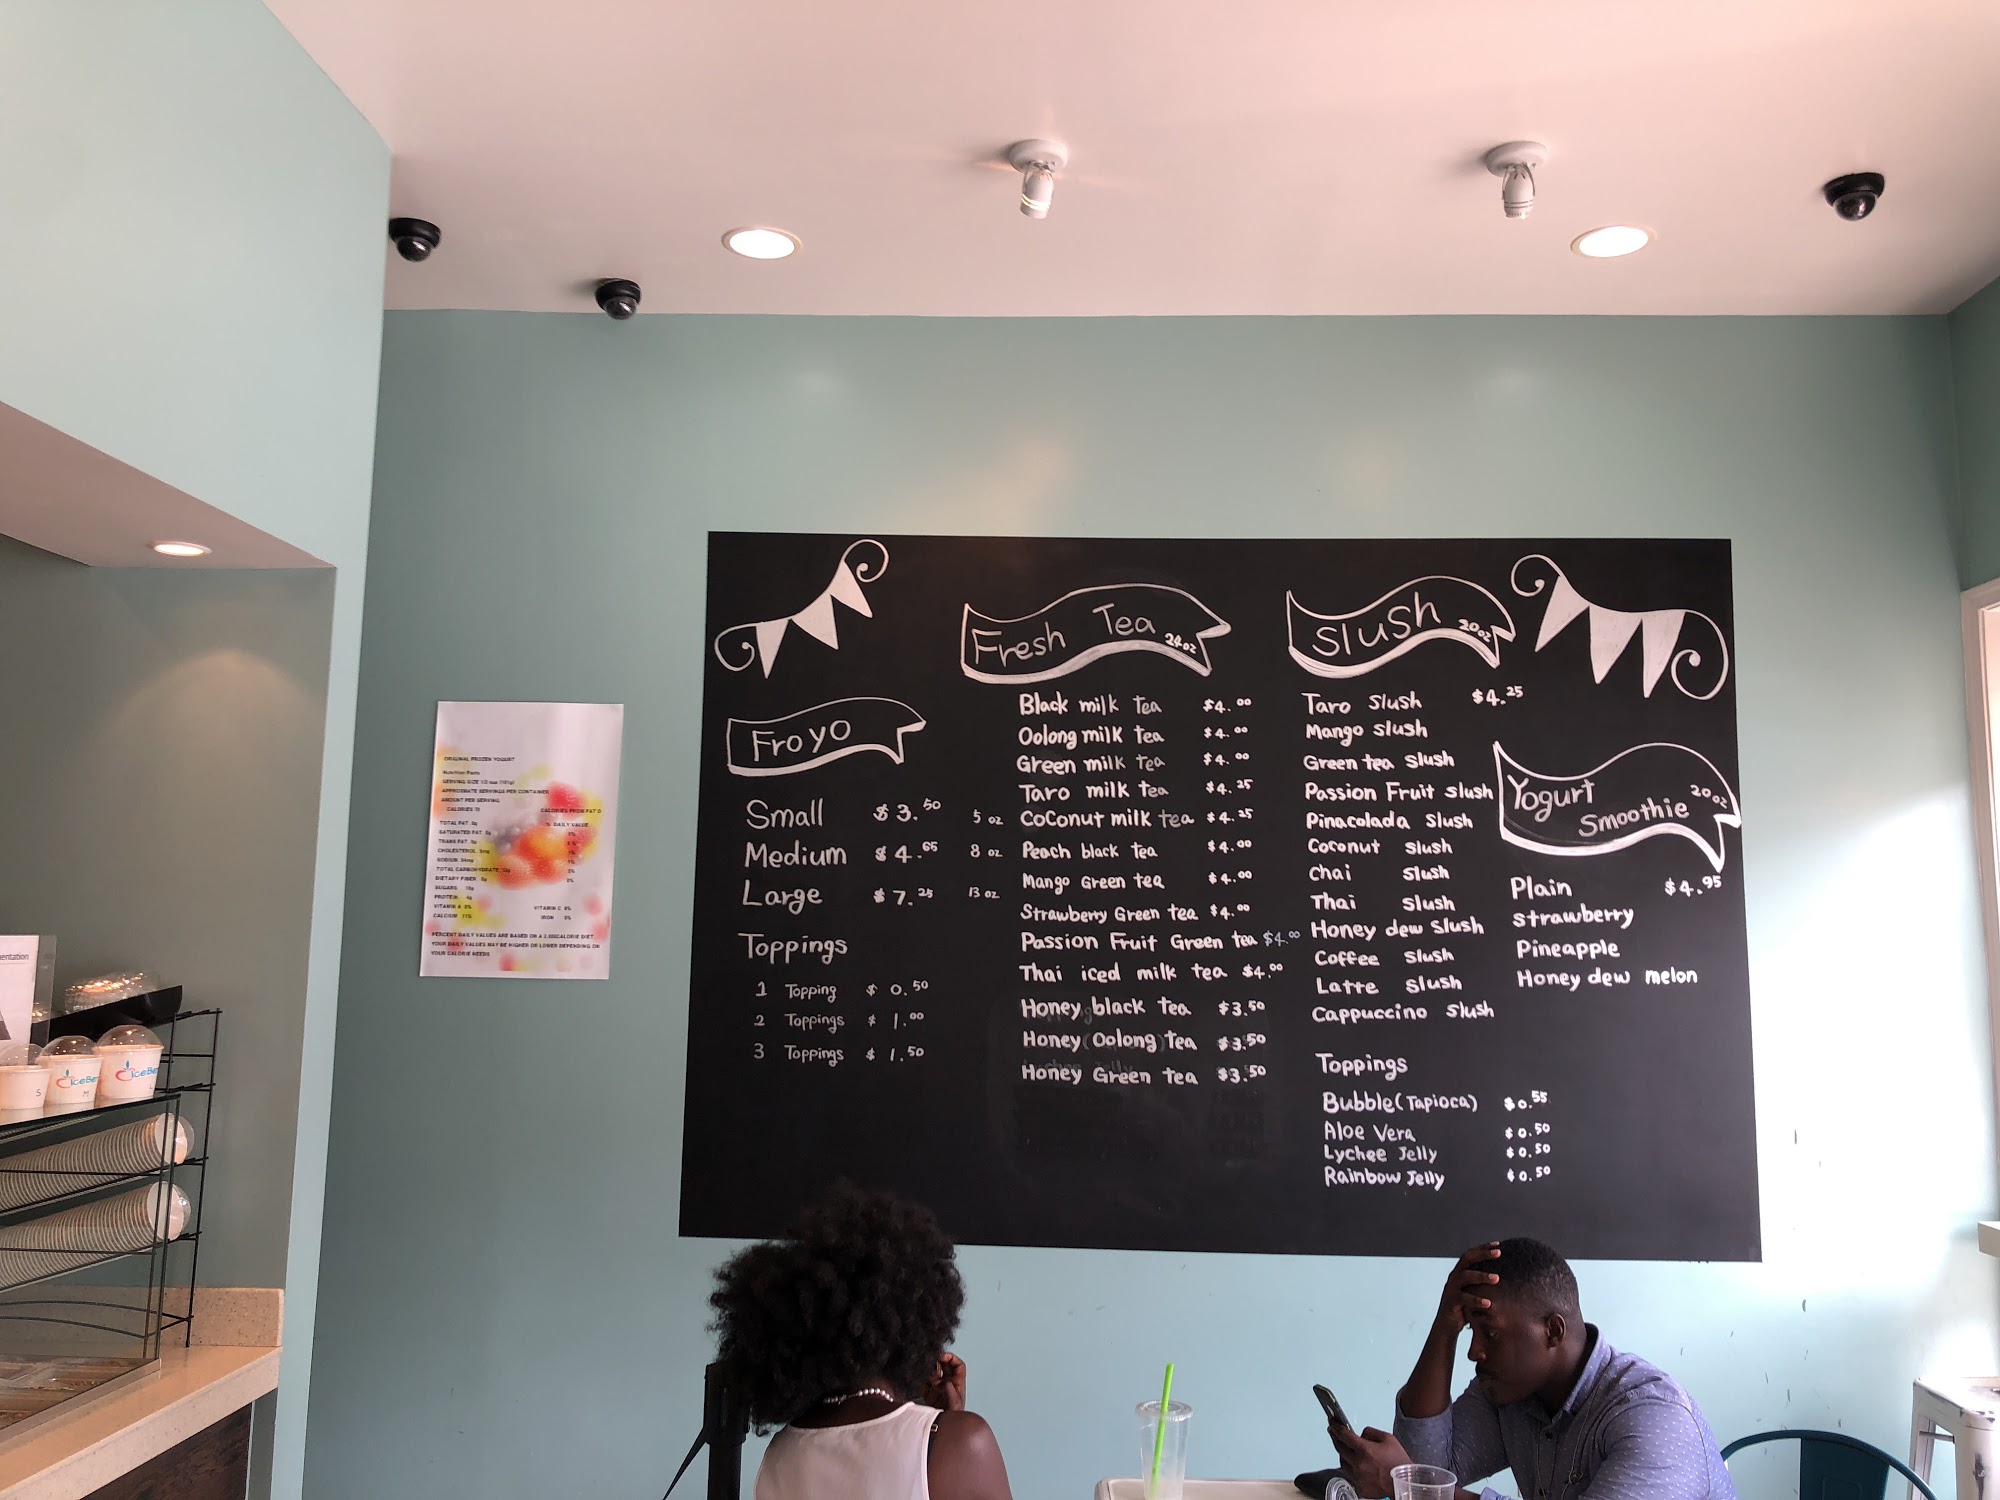 Froyo
Small $3.50 5 oz
Medium $4.65 8 oz
Large $7.25 13 oz
Toppings
1 Topping $0.50
2 Toppings $1.00
3 Toppings $1.50
Fresh Tea 24oz
Black milk tea $4.00
Oolong milk tea $4.00
Green milk tea $4.00
Taro milk tea $4.25
Coconut milk tea $4.25
Peach black tea $4.00
Mango Green tea $4.00
Strawberry Green tea $4.00
Passion Fruit Green tea $4.00
Thai iced milk tea $4.00
Honey black tea $3.50
Honey Oolong tea $3.50
Honey Green tea $3.50
Slush 20oz
Taro Slush $4.25
Mango slush
Green tea slush
Passion Fruit slush
Pinacolada slush
Coconut slush
Chai slush
Thai slush
Honey dew slush
Coffee slush
Latte slush
Cappuccino slush
Toppings
Bubble(Tapioca) $0.55
Aloe Vera $0.50
Lychee Jelly $0.50
Rainbow Jelly $0.50
Yogurt
Smoothie 20oz
Plain $4.95
strawberry
Pineapple
Honey dew melon
ORIGINAL FROZEN YOGURT
Nutrition Facts
SERVING SIZE 1/2 cup (101g)
APPROXIMATE SERVINGS PER CONTAINER
AMOUNT PER SERVING
CALORIES CALORIES FROM FAT 0
% DAILY VALUE
TOTAL FAT 0g 0%
SATURATED FAT 0g
TRANS FAT 0g
CHOLESTEROL
SODIUM
TOTAL CARBOHYDRATE
DIETARY FIBER 0g
SUGARS
PROTEIN 4g
VITAMIN A 0% VITAMIN C
CALCIUM 11% IRON 0%
PERCENT DAILY VALUES ARE BASED ON A 2,000CALORIE DIET
YOUR DAILY VALUES MAY BE HIGHER OR LOWER DEPENDING ON
YOUR CALORIE NEEDS
S
iceBe M
iceBe L